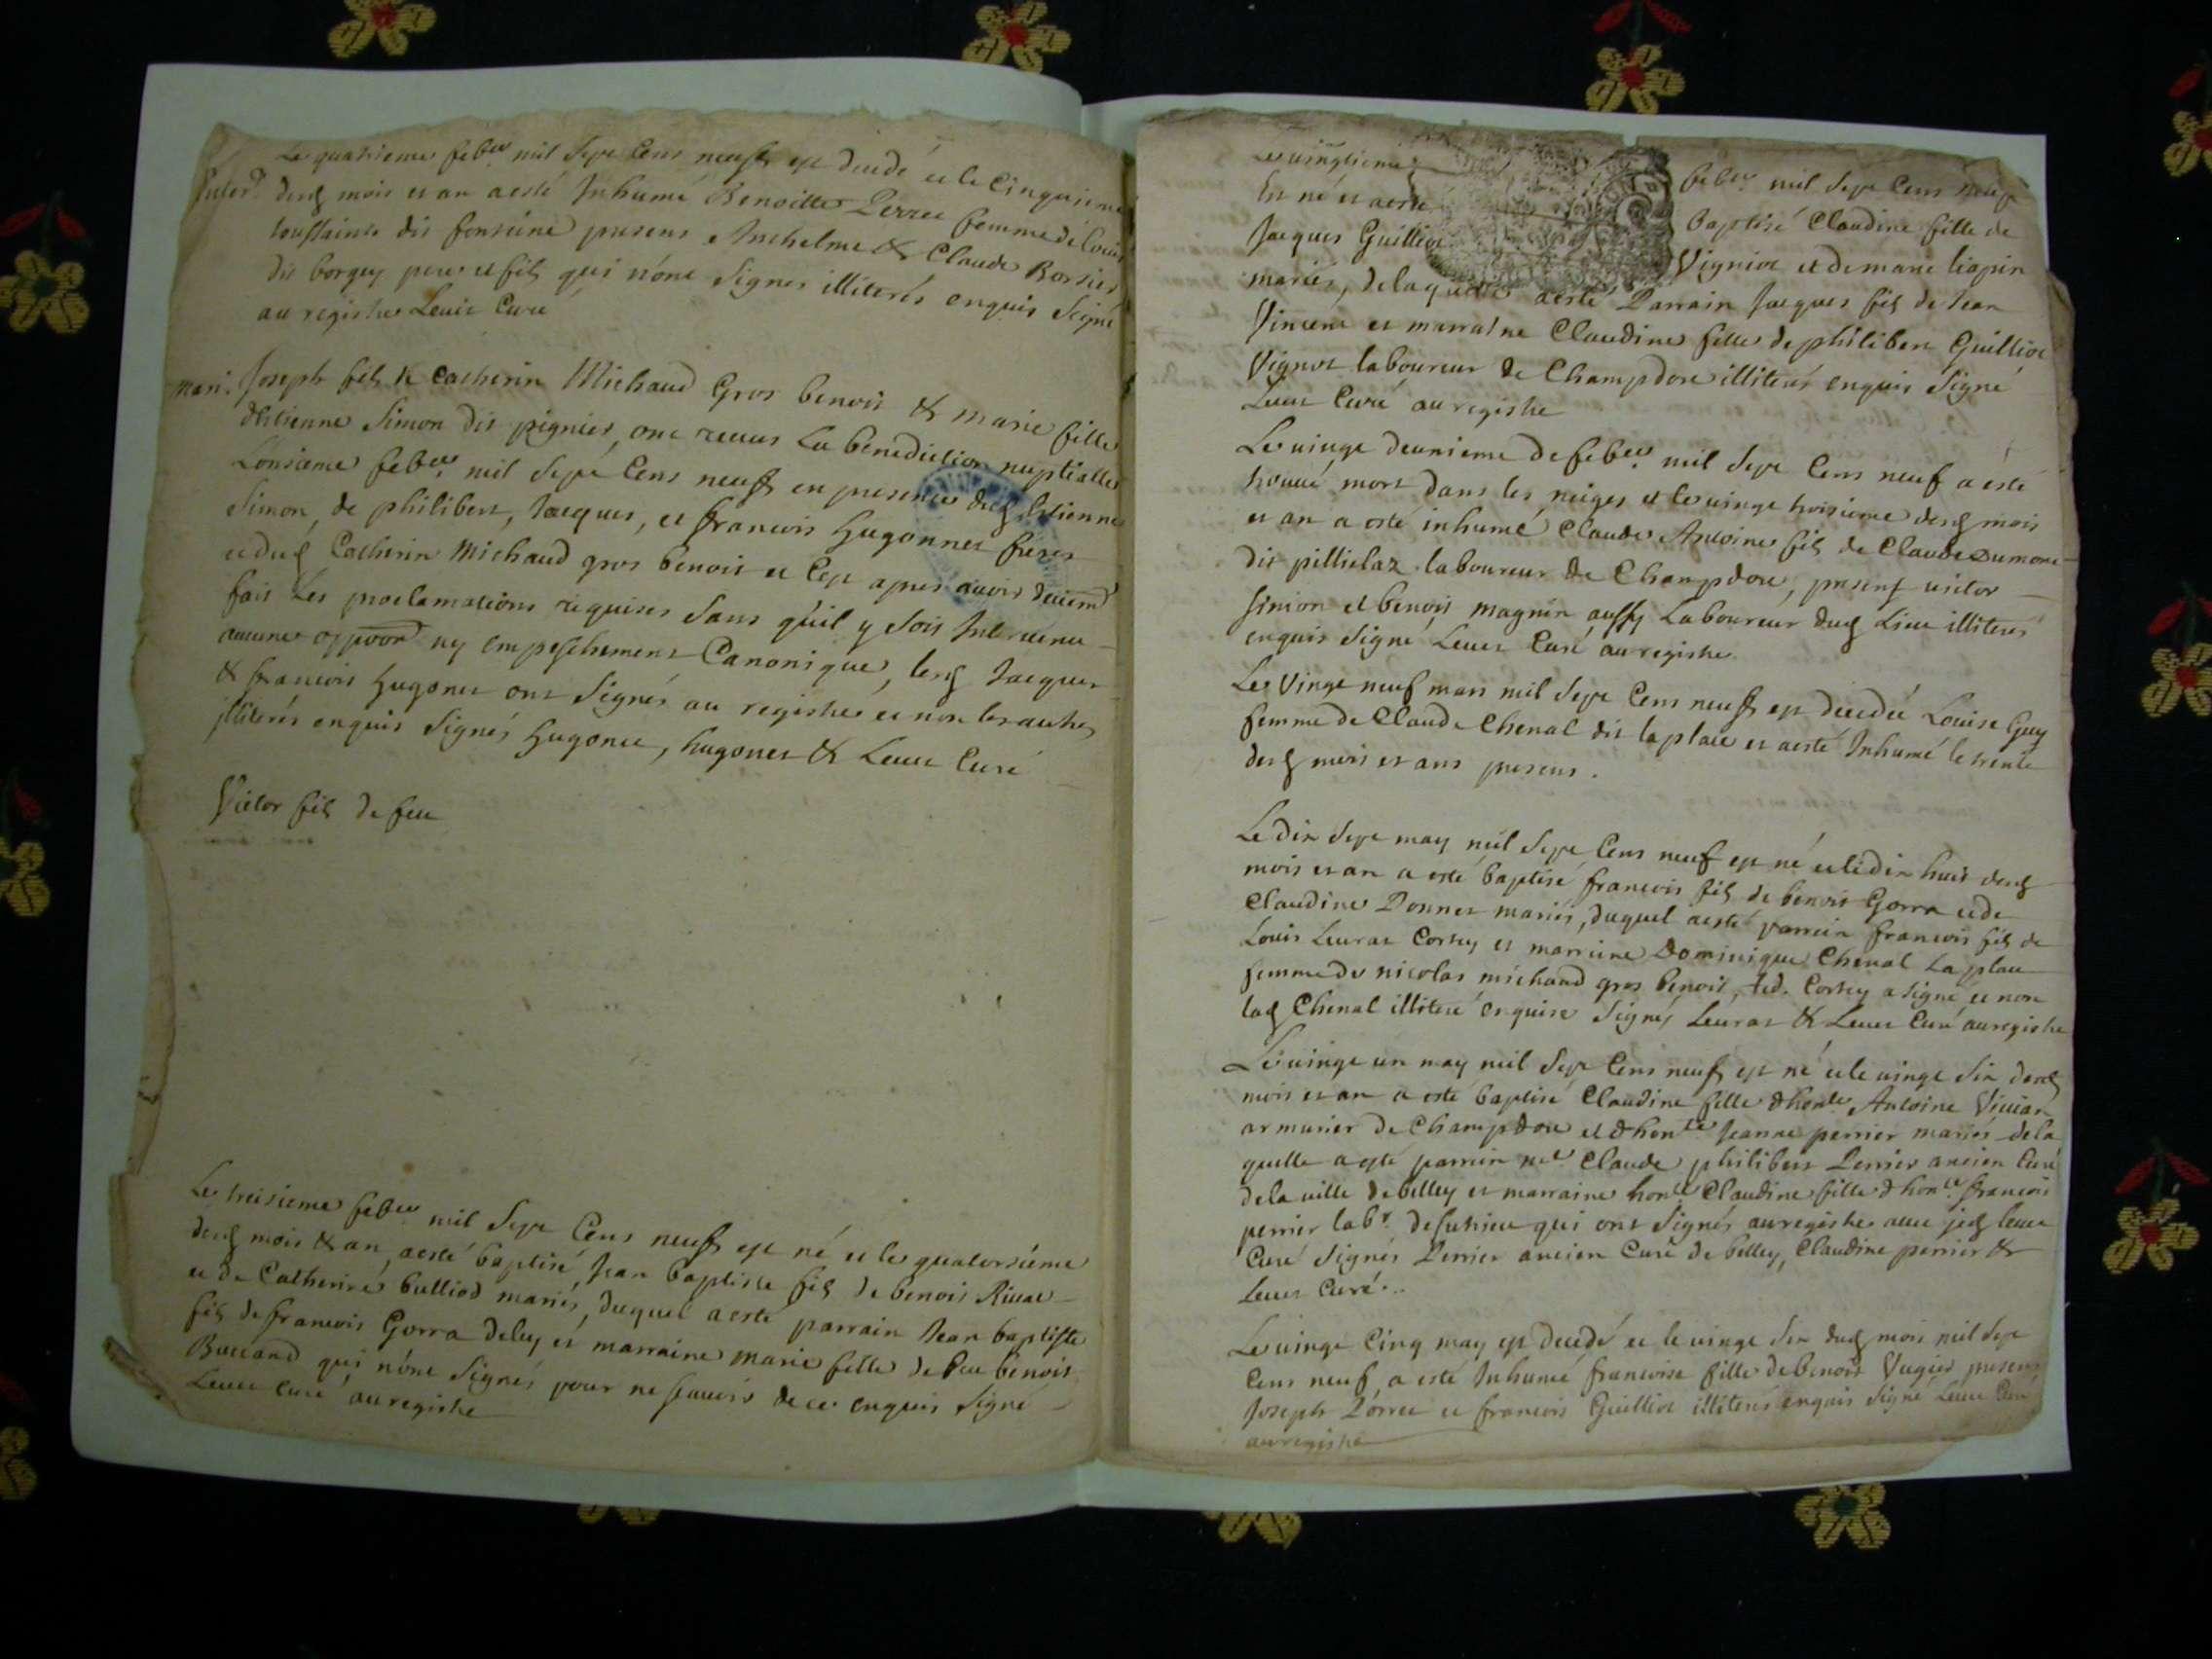 Le quatrieme feb.er mil Sept Cens neuf est decedé et le Cinquieme
desd mois et an a esté Inhumé Benoitte Perret femme de Louis
toussainte dit fonteine presens Anthelme & Claude Borsier
dit borgey pere et fils qui n'ont Signes illiterés enquis Signé
au registre Leuet Curé
mari. Joseph fils de Catherin Michaud Gros benoit & marie fille
d'Estienne Simon dit pignier, ont receus La benediction nuptialle
L'onzieme feb.er mil Sept Cens neuf en presence dud Estienne
Simon, de philibert, Jacques, et francois Hugonnet freres
et dud Catherin Michaud gros benoit et Cest apres avoir deuem.t
fait Les proclamations requises Sans qu'il y Soit Intervenu
aucune oppoon ny empeschement Canonique, lesd Jacques
& francois Hugonet ont Signés au registre et non les autres
illiterés enquis Signés Hugonet, hugonet & Leuet Curé
Victor fils de feu
Le treisieme feb.er mil Sept Cens neuf est né et le quatorsieme
desd mois & an, a esté baptisé, Jean baptiste fils de benoit Rivat
et de Catherine bulliod mariés, duquel a esté parrain Jean baptiste
fils de francois Gorra deley et marraine marie fille de feu benoit
Buttand qui n'ont Signés pour ne scauoir de ce enquis Signé
Leuet Curé au registre
Le vingtieme feb.er mil Sept Cens neuf
Est né et a esté baptisé Claudine fille de
Jacques Guilliot Vigniot et de marie liapin
mariés, de laquelle a esté Parrain Jacques fils de Jean
Vincent et marraine Claudine fille de philibert Guilliot
Vignot laboureur de Champdore illiterés enquis Signé
Leuet Curé au registre
Le vingt deuxieme de feb.er mil Sept Cens neuf a esté
trouué mort dans les neiges et le vingt troisieme desd mois
et an a esté inhumé Claude Antoine fils de Claude Dumont
dit pillielaz laboureur de Champdore, presens victor
Simon et benoit magnin aussy Laboureur dud Lieu illiterés
enquis Signé Leuet Curé au registre
Le Vingt neuf mars mil Sept Cens neuf est decedée Louise Guy
femme de Claude Chenal dit la place et a esté Inhumé le trente
desd mois et ans presens.
Le dix Sept may mil Sept Cens neuf est né et le dix huit desd
mois et an a esté baptisé francois fils de benoit Gorra et de
Claudine Donnet mariés, duquel a esté parrein francois fils de
Louis Leurat Corsey et marreine Dominique Chenal La place
femme de nicolas michaud gros benoit, led. Corsey a signé et non
lad Chenal illiteré enquise Signés Leurat & Leuet Curé au registre
Le vingt un may mil Sept Cens neuf est né et le vingt Six desd
mois et an a esté baptisé Claudine fille d'hon.le Antoine Vivian
armurier de Champdore et d'hon.le Jeanne perrier mariés de la
quelle a esté parrein m.re Claude philibert Perrier ancien Curé
de la ville de belley et marraine hon.le Claudine fille d'hon.le francois
perrier lab.r de suthieu qui ont Signés au registre avec jed Leuet
Curé Signés Perrier ancien Curé de belley, Claudine perrier &
Leuet Curé...
Le vingt Cinq may est decedé et le vingt Six dud mois mil Sept
Cens neuf a esté Inhumé francoise fille de benoit Vugier presens
Joseph Perret et francois Guilliot illiterés enquis Signé Leuet Curé
au registre